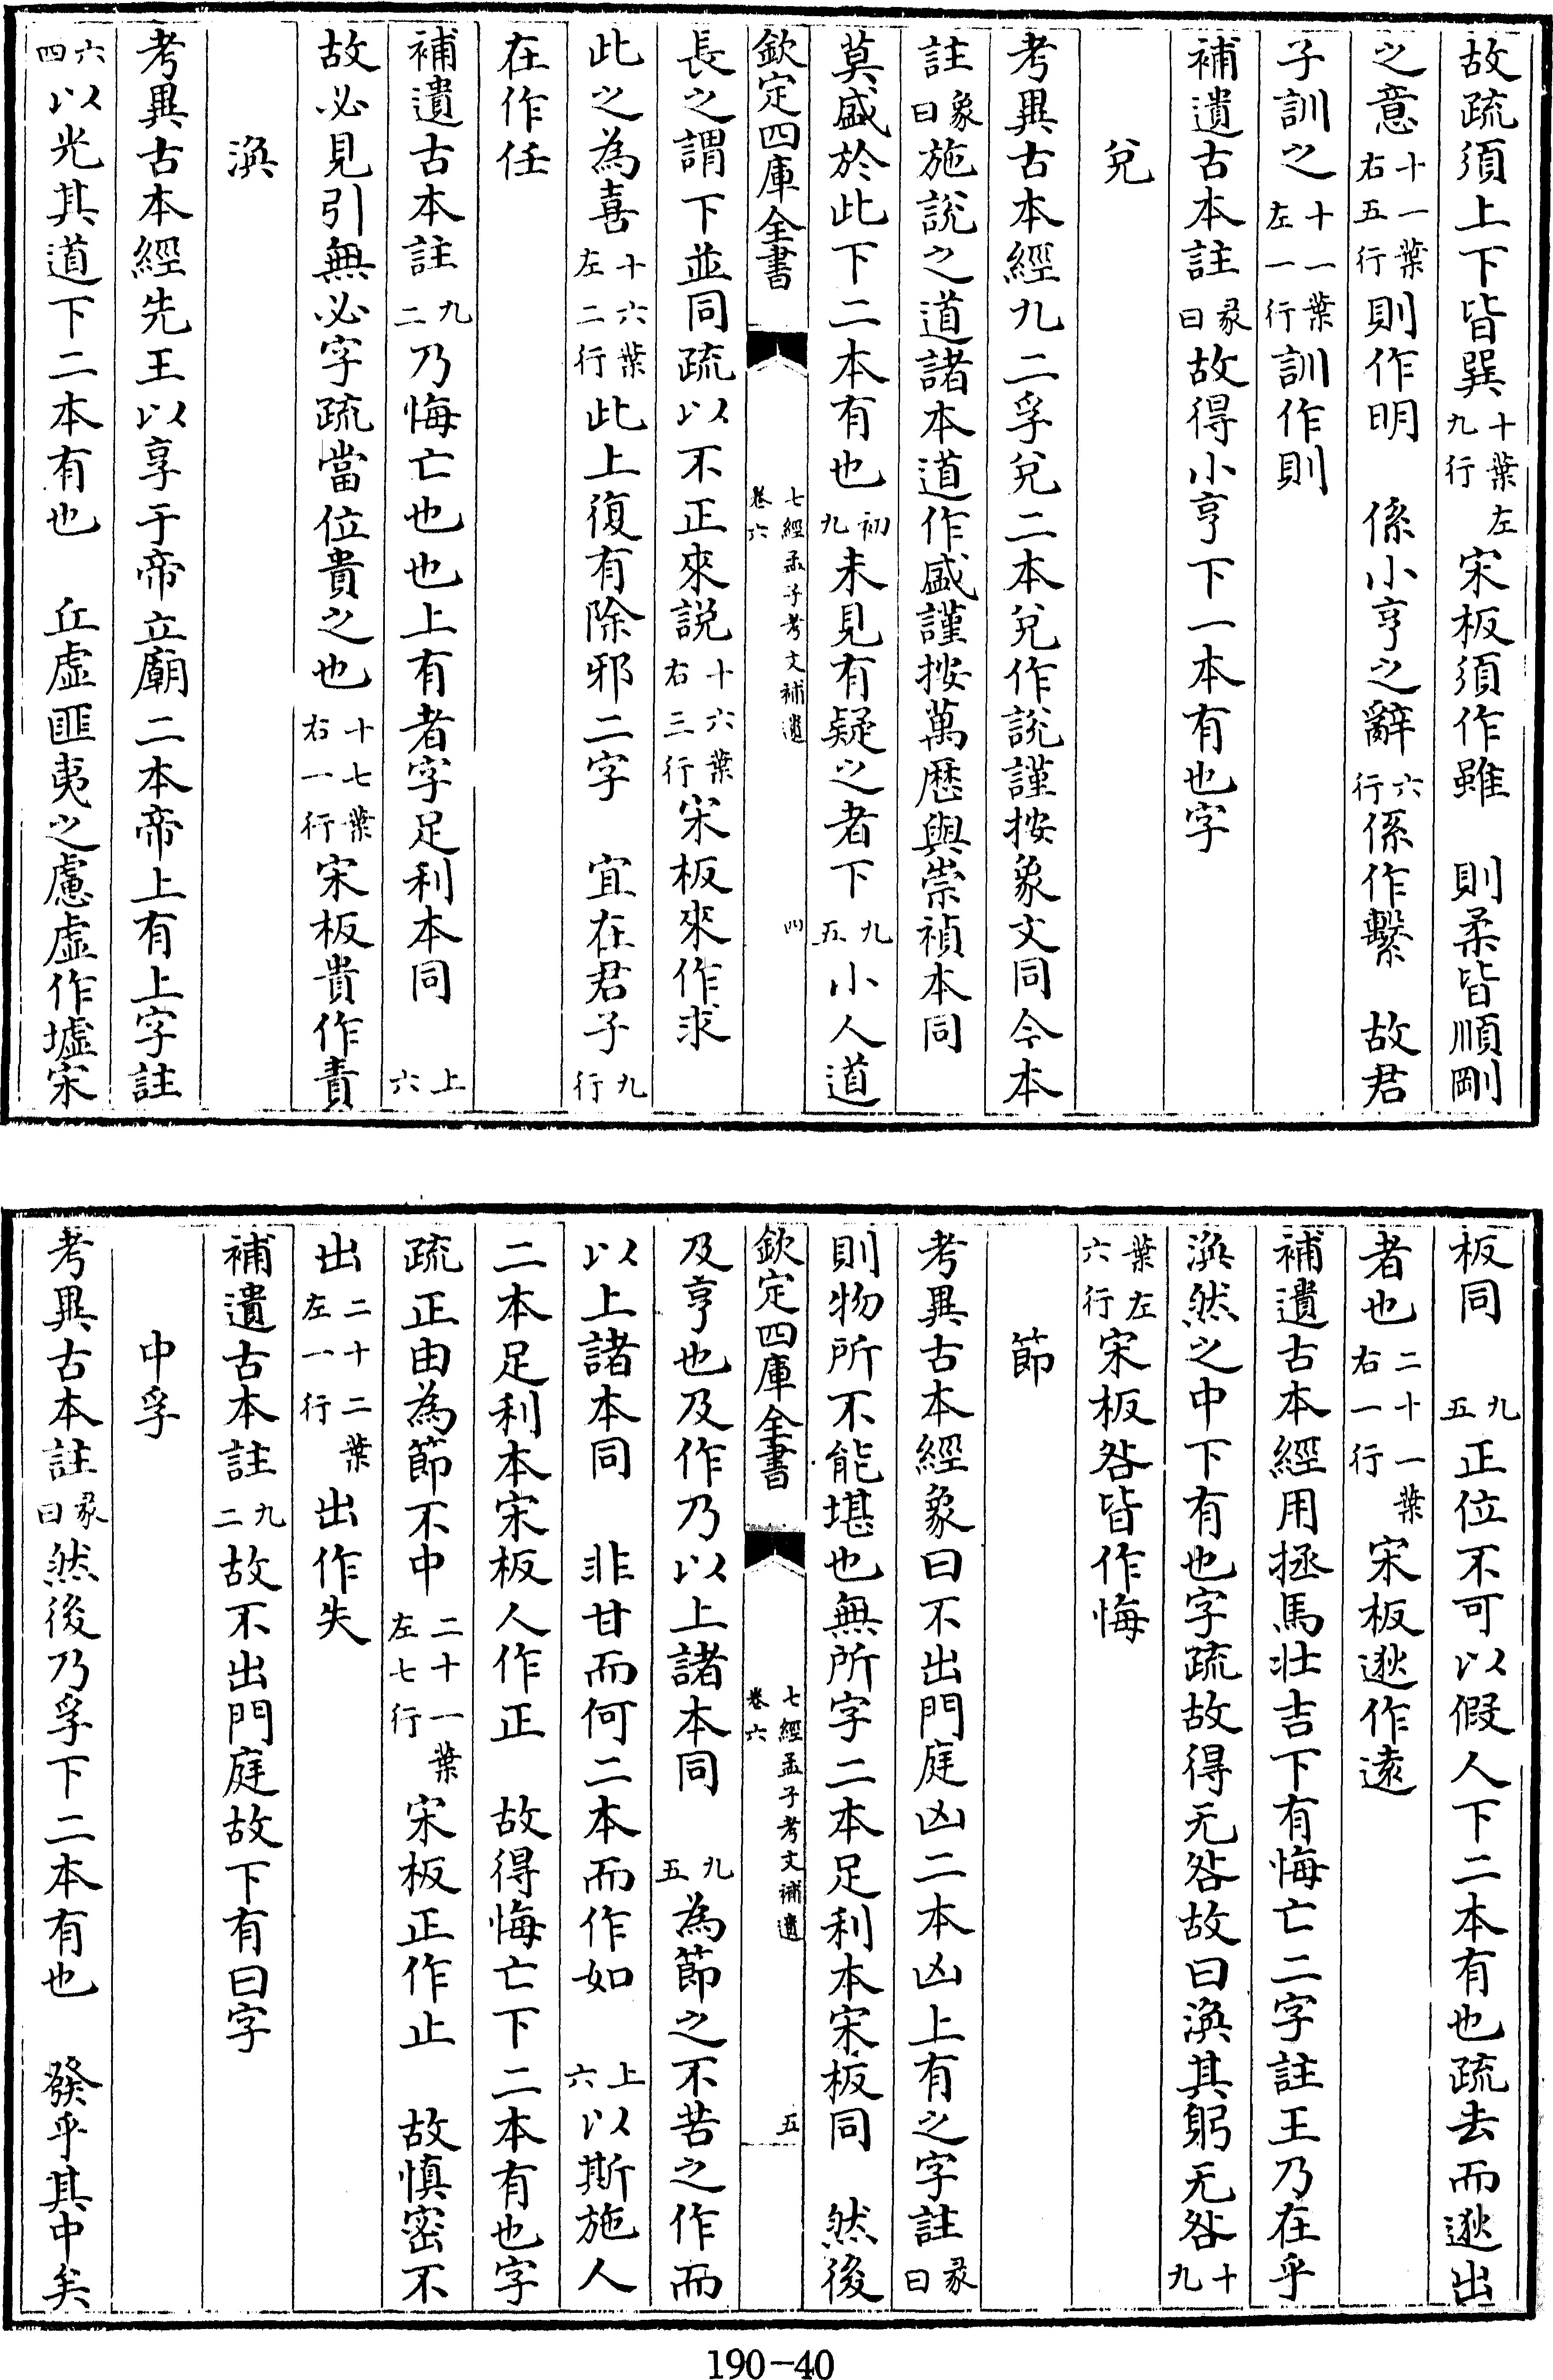 故疏須上下皆巽十葉左九行宋板須作雖　則柔皆順剛
之意十一葉右五行則作明　係小亨之辭六行係作繫　故君
子訓之十一葉左一行訓作則
補遺古本註彖曰故得小亨下一本有也字
兌
考異古本經九二孚兌二本兌作說謹按象文同今本
註象曰施說之道諸本道作盛謹按萬厯與崇禎本同
莫盛於此下二本有也初九未見有疑之者下　九五小人道
欽定四庫全書　七經孟子考文補遺卷六　四
長之謂下並同疏以不正來説十六葉右三行宋板來作求
此之為喜十六葉左二行此上復有除邪二字　宜在君子九行
在作任
補遺古本註九二乃悔亡也也上有者字足利本同　上六
故必見引無必字疏當位貴之也十七葉右一行宋板貴作責
渙
考異古本經先王以享于帝立廟二本帝上有上字註
六四以光其道下二本有也　丘虛匪夷之慮虛作墟宋
板同　九五正位不可以假人下二本有也疏去而逖出
者也二十一葉右一行宋板逖作遠
補遺古本經用拯馬壯吉下有悔亡二字註王乃在乎
渙然之中下有也字疏故得无咎故曰渙其躬无咎十九
葉左六行宋板咎皆作悔
節
考異古本經象曰不出門庭凶二本凶上有之字註彖曰
則物所不能堪也無所字二本足利本宋板同　然後
欽定四庫全書　七經孟子考文補遺卷六　五
及亨也及作乃以上諸本同　九五為節之不苦之作而
以上諸本同　非甘而何二本而作如　上六以斯施人
二本足利本宋板人作正　故得悔亡下二本有也字
疏正由為節不中二十一葉左七行宋板正作止　故慎密不
出二十二葉左一行出作失
補遺古本註九二故不出門庭故下有曰字
中孚
考異古本註彖曰然後乃孚下二本有也　發乎其中矣
190-40